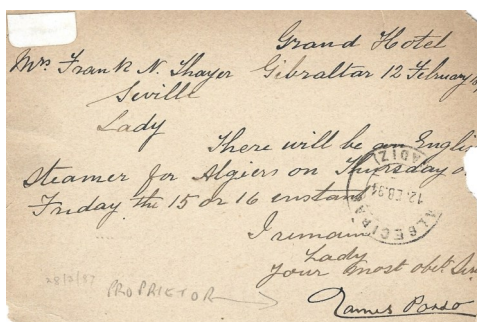 Grand Hotel
Mrs Frank N. Thayer Gibraltar 12 February
Seville
Lady
There will be an Englis
steamer for Algiers on Thursday o
Friday the 15 or 16 instant
I remain
Lady
your most obt. Ser
James
PROPRIETOR
ALGECIRA
12.FEB.94
CADIZ